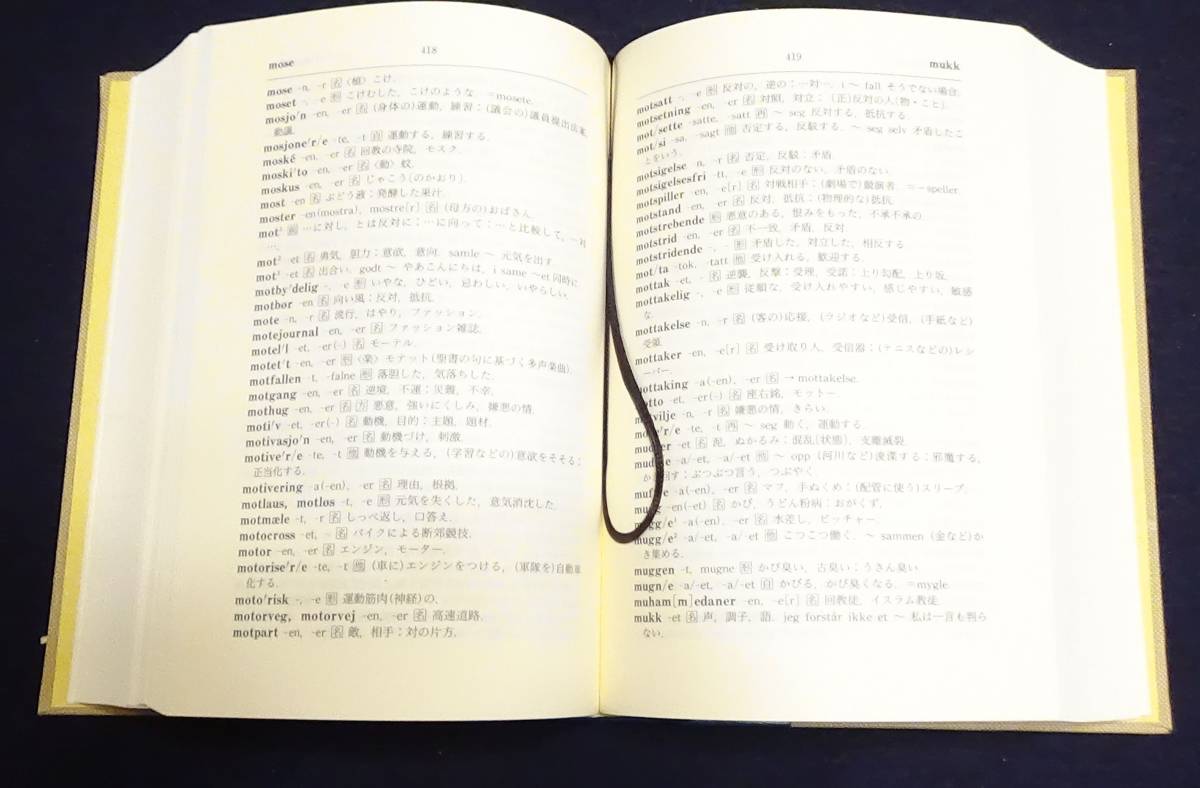 418
mose
mose -n, -r 名〈植〉こけ.
moset -, -e 形 こけむした, こけのような =mosete.
mosjo'n -en, -er 名 (身体の)運動, 練習；(議会の)議員提出法案,
動議.
mosjone'r/e -te, -t 自 運動する, 練習する.
moské -en, -er 名 回教の寺院, モスク.
moski'to -en, -er 名〈動〉蚊.
moskus -en, -er 名 じゃこう(のかおり).
most -en 名 ぶどう液；発酵した果汁.
moster -en(mostra), mostre[r] 名 (母方の)おばさん.
mot¹ 前 …に対し, とは反対に；…に向って；…と比較して, 一対
….
mot² -et 名 勇気, 胆力；意欲, 意向. samle ～ 元気を出す.
mot³ -et 名 出合い. godt ～ やあこんにちは. i same ～et 同時に.
motby'delig -, -e 形 いやな, ひどい, 忌わしい, いやらしい.
motbør -en 名 向い風；反対, 抵抗.
mote -n, -r 名 流行, はやり, ファッション.
motejournal -en, -er 名 ファッション雑誌.
motel'l -et, -er(-) 名 モーテル.
motet't -en, -er 名〈楽〉モテット(聖書の句に基づく多声楽曲).
motfallen -t, -falne 形 落胆した, 気落ちした.
motgang -en, -er 名 逆境, 不運；災難, 不幸.
mothug -en, -er 名 方 悪意, 強いにくしみ, 嫌悪の情.
moti'v -et, -er(-) 名 動機, 目的；主題, 題材.
motivasjo'n -en, -er 名 動機づけ, 刺激.
motive'r/e -te, -t 他 動機を与える, (学習などの)意欲をそそる；
正当化する.
motivering -a(-en), -er 名 理由, 根拠.
motlaus, motløs -t, -e 形 元気を失くした, 意気消沈した.
motmæle -t, -r 名 しっぺ返し, 口答え.
motocross -et, - 名 バイクによる断郊競技.
motor -en, -er 名 エンジン, モーター.
motorise'r/e -te, -t 他 (車に)エンジンをつける, (軍隊を)自動車
化する.
moto'risk -, -e 形 運動筋肉(神経)の.
motorveg, motorvej -en, -er 名 高速道路.
motpart -en, -er 名 敵, 相手；対の片方.
419
mukk
motsatt -, -e 形 反対の, 逆の；一対一. i ～ fall そうでない場合.
motsetning -en, -er 名 対照, 対立；(正)反対の人(物・こと).
mot/sette -satte, -satt 再 ～ seg 反対する, 抵抗する.
mot/si -sa, -sagt 他 否定する, 反駁する. ～ seg selv 矛盾したこ
とをいう.
motsigelse -n, -r 名 否定, 反駁；矛盾.
motsigelsesfri -tt, -e 形 反対のない, 矛盾のない.
motspiller -en, -e[r] 名 対戦相手；(劇場で)競演者. =-speller.
motstand -en, -er 名 反対, 抵抗；(物理的な)抵抗.
motstrebende 形 悪意のある, 恨みをもった, 不承不承の.
motstrid -en, -er 名 不一致, 矛盾, 反対.
motstridende -, - 形 矛盾した, 対立した, 相反する.
mot/ta -tok, -tatt 他 受け入れる, 歓迎する.
mottak -et, - 名 逆襲, 反撃；受理, 受諾；上り勾配, 上り坂.
mottakelig -, -e 形 従順な, 受け入れやすい, 感じやすい, 敏感
な.
mottakelse -n, -r 名 (客の)応接, (ラジオなど)受信, (手紙など)
受領.
mottaker -en, -e[r] 名 受け取り人, 受信器；(テニスなどの)レシ
ーバー.
mottaking -a(-en), -er 名 → mottakelse.
otto -et, -er(-) 名 座右銘, モットー.
vilje -n, -r 名 嫌悪の情, きらい.
e'r/e -te, -t 再 ～ seg 動く, 運動する.
er -et 名 泥, ぬかるみ；混乱(状態), 支離滅裂.
mud e -a/-et, -a/-et 他 ～ opp (河川など)浚渫する；邪魔する,
か 回す；ぶつぶつ言う, つぶやく.
muf e -a(-en), -er 名 マフ, 手ぬくめ；(配管に使う)スリーブ.
mugg -en(-et) 名 かび, うどん粉病；おがくず.
mugg/e¹ -a(-en), -er 名 水差し, ピッチャー.
mugg/e² -a/-et, -a/-et 他 こつこつ働く. ～ sammen (金など)か
き集める.
muggen -t, mugne 形 かび臭い, 古臭い；うさん臭い.
mugn/e -a/-et, -a/-et 自 かびる, かび臭くなる. =mygle.
muham[m]edaner -en, -e[r] 名 回教徒, イスラム教徒.
mukk -et 名 声, 調子, 語. jeg forstår ikke et ～ 私は一言も判ら
ない.